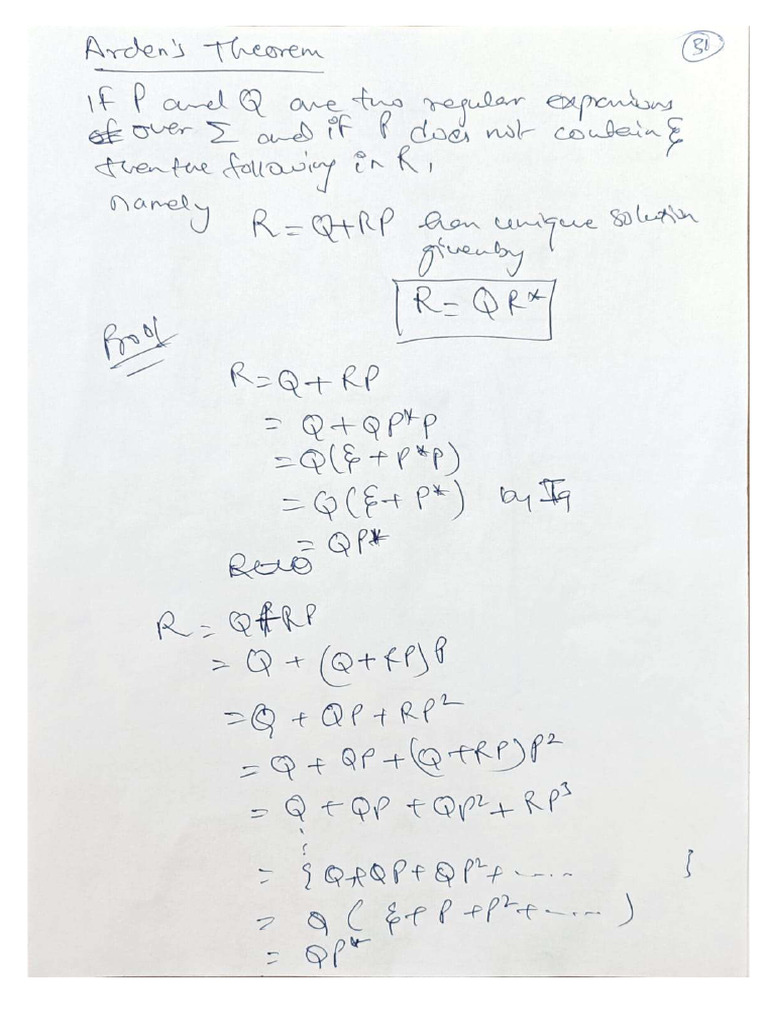 Arden's Theorem
31
If P and Q are two regular expressions
of over Σ and if P does not contain ε
then the following in R,
namely R = Q+RP has unique solution
given by
R = QR*
Proof
R = Q + RP
= Q + QP*P
= Q(ε + P*P)
= Q(ε + P*) by I9
= QP*
R = Q+RP
= Q + (Q+RP)P
= Q + QP + RP²
= Q + QP + (Q+RP)P²
= Q + QP + QP² + RP³
⋮
= { Q+QP+QP²+ ..... }
= Q ( ε+P+P²+ .... )
= QP*